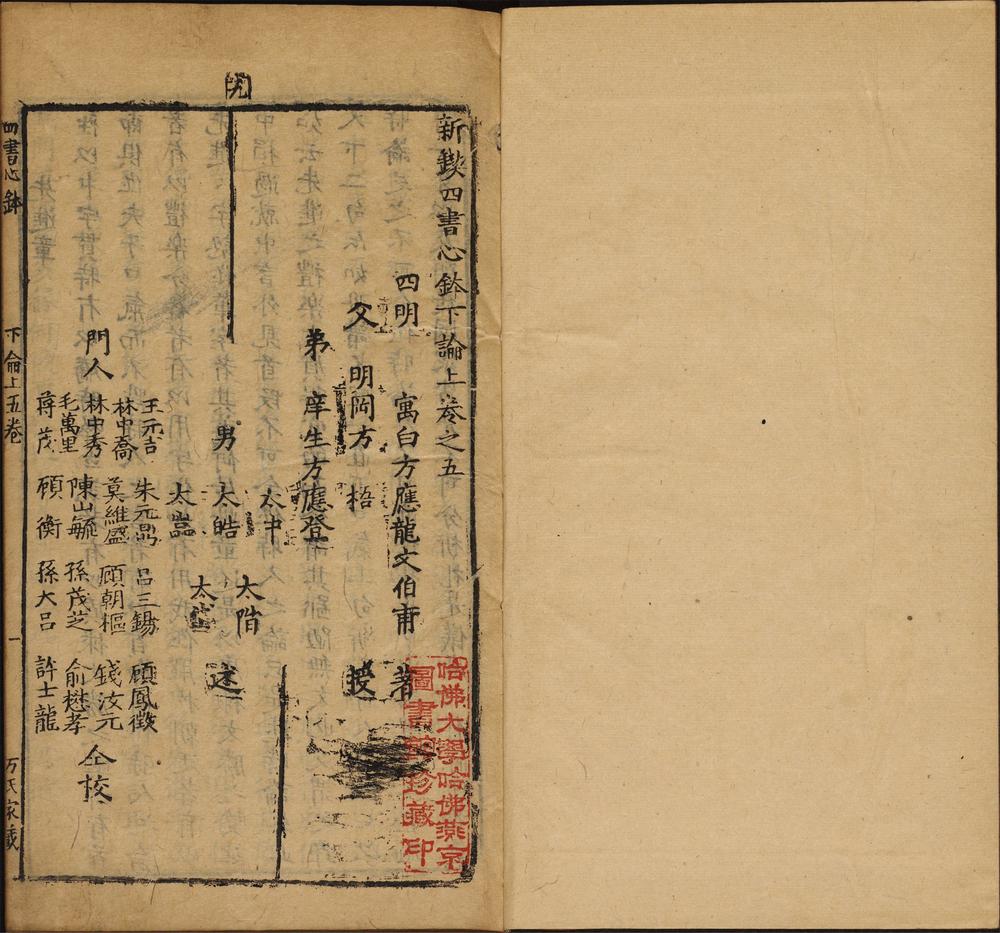 新鍥四書心鉢下論上卷之五
四明 寓白方應龍文伯甫 著
父 明岡方 梧 授
弟 庠生方應登
太中 太階
男 太皓 述
太嵓
門人
王元吉 朱元鼎 呂三錫 顧鳳徵
林中喬 莫維盛 顧朝樞 錢汝元
林中秀 陳山毓 孫茂芝 俞懋孝
毛萬里
蔣茂 顧衡 孫大呂 許士龍
仝校
四書心鉢 下侖上五卷 一 方氏家藏
哈佛大學哈佛燕京
圖書館珍藏印